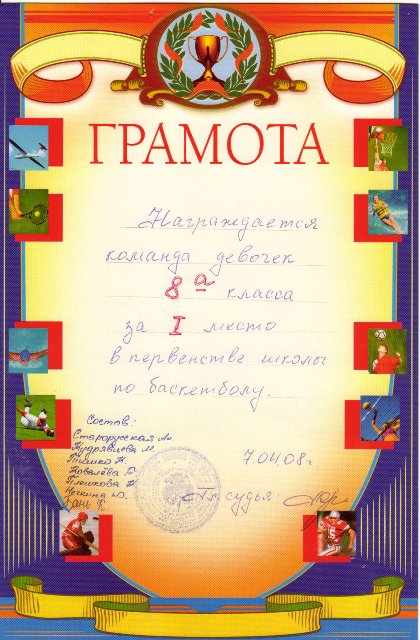 ГРАМОТА
Награждается
команда девочек
8а класса
за I место
в первенстве школы
по баскетболу.
Состав:
Старорусская Ан.
Кудрявцева М.
Тишко Н.
Ковалёва Т.
Плешкова Н.
7.04.08г.
Гл. судья: